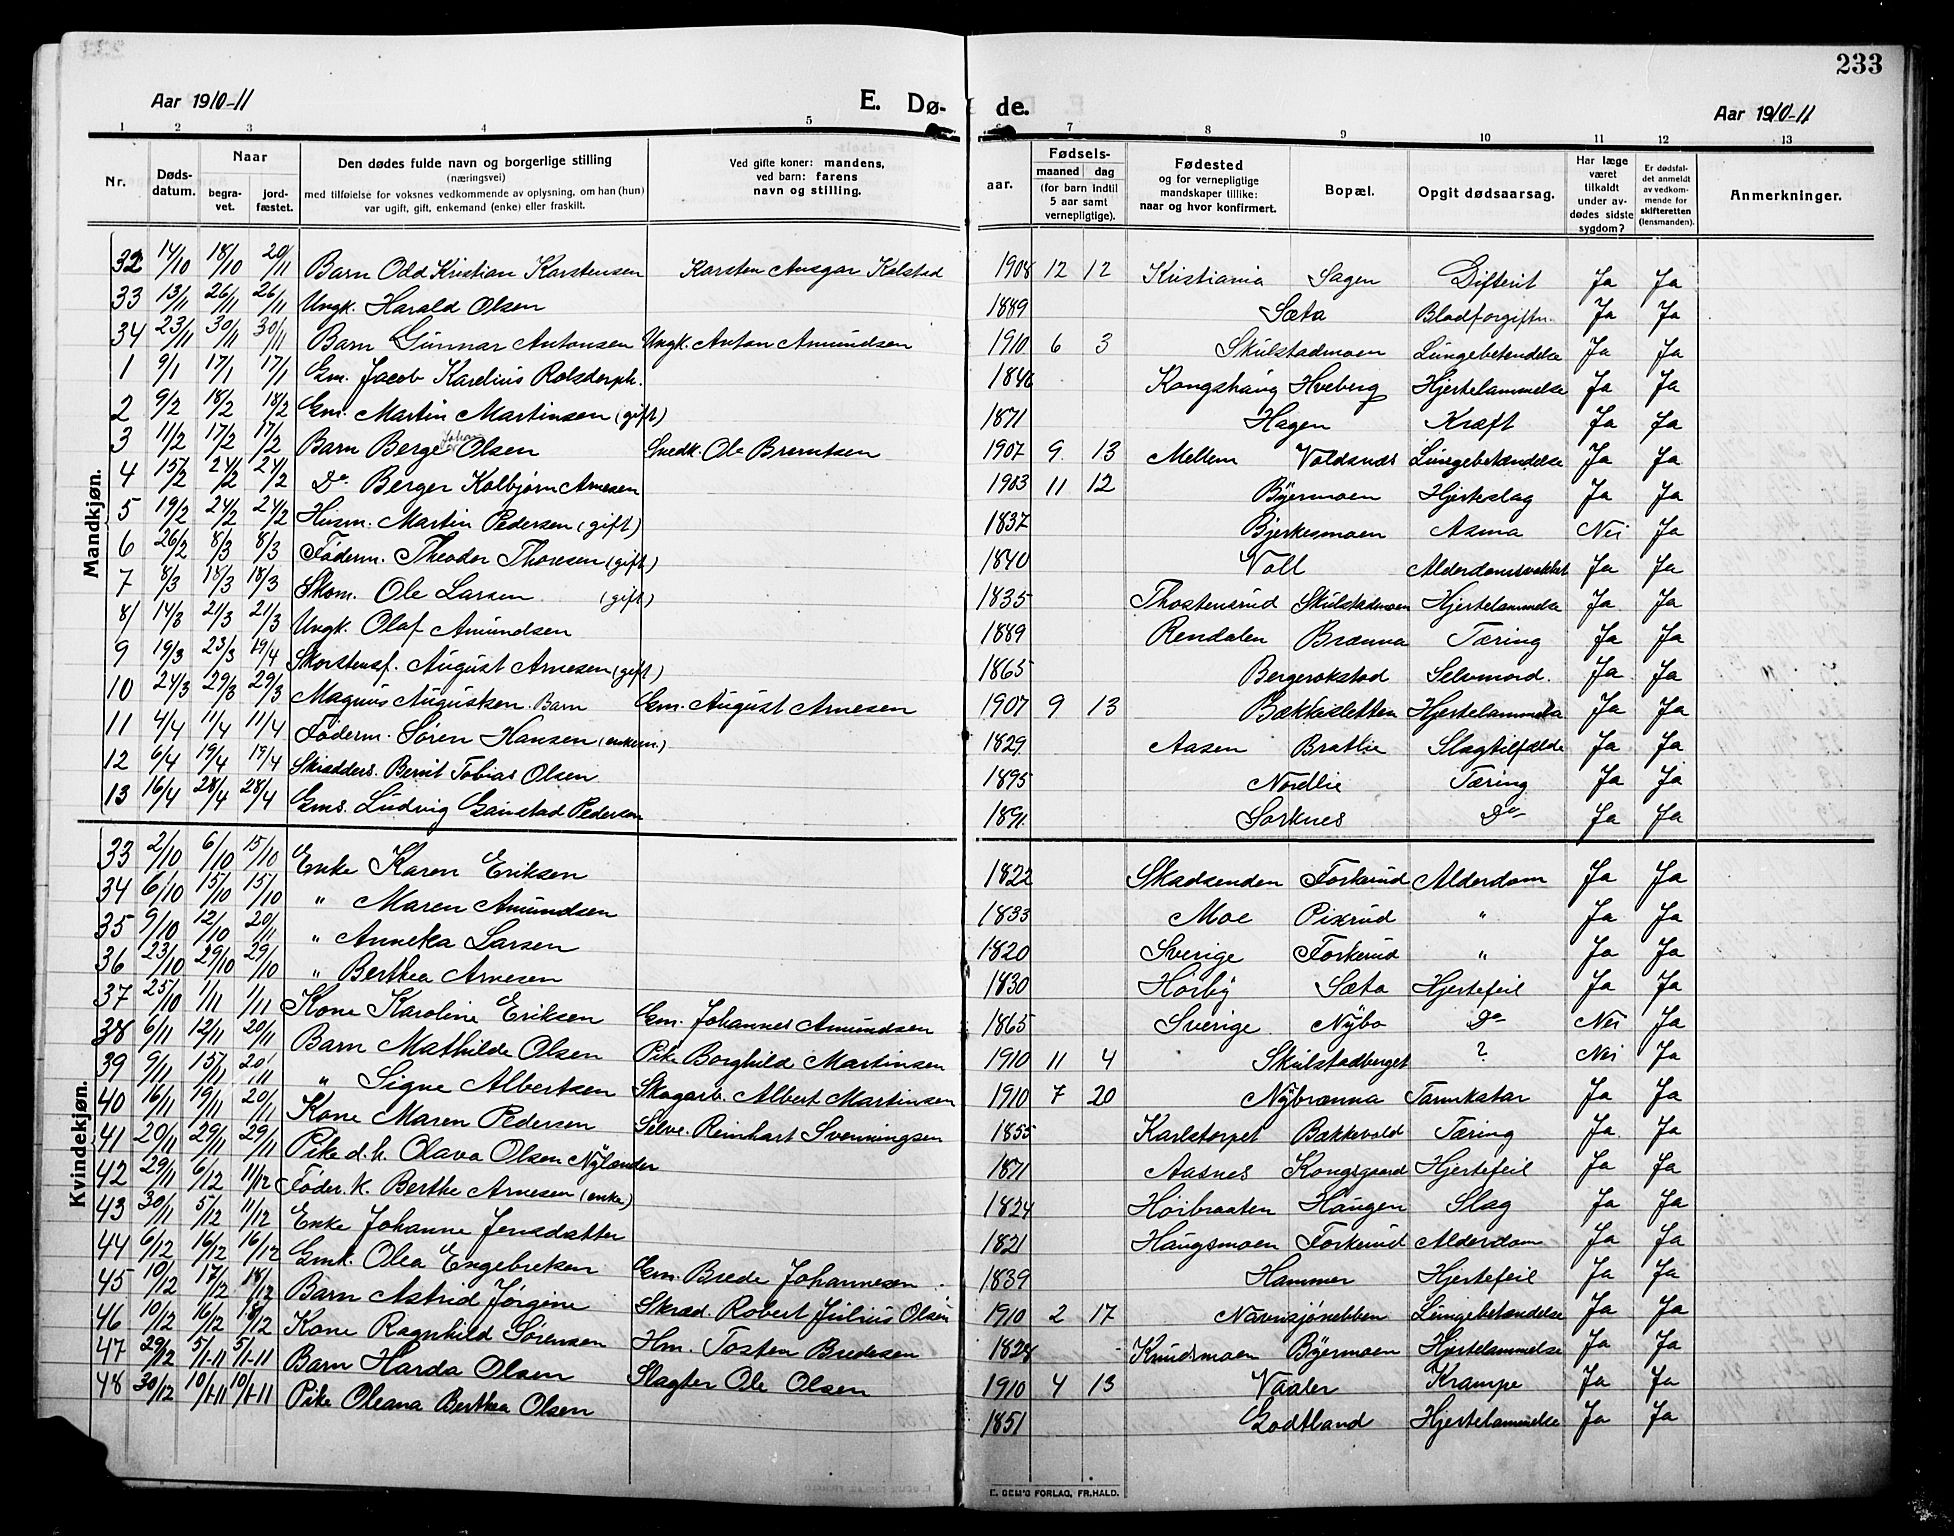 233
Aar 1910-11 E. Dø- de. Aar 1910-11
1 2 3 4 5 7 8 9 10 11 12 13
Nr. Dødsdatum. Naar begravet. jordfæstet. Den dødes fulde navn og borgerlige stilling (næringsvei) med tilføielse for voksnes vedkommende av oplysning, om han (hun) var ugift, gift, enkemand (enke) eller fraskilt. Ved gifte koner: mandens, ved barn: farens navn og stilling. aar. Fødsels- maaned dag (for barn indtil 5 aar samt vernepligtige). Fødested og for vernepligtige mandskaper tillike: naar og hvor konfirmert. Bopæl. Opgit dødsaarsag. Har læge været tilkaldt under avdødes sidste sygdom? Er dødsfaldet anmeldt av vedkommende for skifteretten (lensmanden). Anmerkninger.
Mandkjøn.
32 14/10 18/10 20/11 Barn Odd Kristian Karstensen Karsten Ansgar Kolstad 1908 12 12 Kristiania Sagen Difterit Ja Ja
33 13/11 26/11 26/11 Ungk. Harald Olsen 1889 Sæta Blodforgiftn. Ja Ja
34 23/11 30/11 30/11 Barn Gunnar Antonsen Ungk. Anton Amundsen 1910 6 3 Skulstadmoen Lungebetendelse Ja Ja
1 9/1 17/1 17/1 Gm. Jacob Karelius Rolsdorph. 1846 Kongshaug Hveberg Hjertelammelse Ja Ja
2 9/2 18/2 18/2 Gm. Martin Martinsen (gift) 1871 Hagen Kræft Ja Ja
3 11/2 17/2 17/2 Barn Berge Johan Olsen Snedk. Ole Bremtsen 1907 9 13 Mellem Voldsnæs Lungebetændelse Ja Ja
4 15/2 24/2 24/2 Do Berger Kolbjørn Arnesen 1903 11 12 Byermoen Hjerteslag Ja Ja
5 19/2 24/2 24/2 Husm. Martin Pedersen (gift) 1837 Bjerkesmoen Asma Nei Ja
6 26/2 8/3 8/3 Føderm. Theodor Thoresen (gift) 1840 Voll Alderdomsvakhet Ja Ja
7 8/3 18/3 18/3 Skom. Ole Larsen (gift) 1835 Thostensrud Skulstadmoen Hjertelammelse Ja Ja
8 14/3 21/3 21/3 Ungk. Olaf Amundsen 1889 Rendalen Brænna Tæring Ja Ja
9 19/3 23/3 19/4 Skorstensf. August Arnesen (gift) 1865 Bergerokstad Selvmord. Ja Ja
10 24/3 29/3 29/3 Magnus Augustsen. Barn Gm. August Arnesen 1907 9 13 Bækkesletten Hjertelammelse Ja Ja
11 4/4 11/4 11/4 Føderm. Søren Hansen (enkem.) 1829 Aasen Bratlie Slagtilfælde Ja Ja
12 6/4 19/4 19/4 Skradders. Bernt Tobias Olsen 1895 Nordlie Tæring Ja Ja
13 16/4 28/4 28/4 Gms. Ludvig Gaustad Pedersen 1891 Sorknes Do Ja Ja
Kvindekjøn.
33 2/10 6/10 15/10 Enke Karen Eriksen 1822 Skadsenden Forkerud Alderdom Ja Ja
34 6/10 15/10 15/10 " Maren Amundsen 1833 Moe Pixrud " Ja Ja
35 9/10 12/10 20/11 " Anneka Larsen 1820 Sverige Forkerud " Ja Ja
36 23/10 29/10 29/10 " Berthea Arnesen 1830 Hørby Sæta Hjertefeil Ja Ja
37 25/10 1/11 1/11 Kone Karoline Eriksen Gm. Johannes Amundsen 1865 Sverige Nybo Do Nei Ja
38 6/11 12/11 20/11 Barn Mathilde Olsen Pike Borghild Martinsen 1910 11 4 Skulstadberget ? Nei Ja
39 9/11 15/11 20/11 " Signe Albertsen Skogarb. Albert Martinsen 1910 7 20 Nybrænna Tarmkatar Ja Ja
40 16/11 19/11 20/11 Kone Maren Pedersen Selve. Reinhart Svenningsen 1855 Karlstorpet Bækkevold Tæring Ja Ja
41 20/11 29/11 29/11 Pike d.h. Olava Olsen Nylænder 1871 Aasnes Kongsgaard Hjertefeil Ja Ja
42 29/11 6/12 11/12 Føder.k. Berthe Arnesen (enke) 1824 Høibraaten Haugen Slag Ja Ja
43 30/11 5/12 11/12 Enke Johanne Jensdatter 1821 Haugsmoen Forkerud Alderdom Ja Ja
44 6/12 16/12 16/12 Gmk. Olea Engebretsen Gm. Brede Johannesen 1839 Hammer Hjertefeil Ja Ja
45 10/12 17/12 18/12 Barn Astrid Jørgine Skræd. Robert Julius Olsen 1910 2 17 Navnsjønebben Lungebetendelse Ja Ja
46 10/12 16/12 18/12 Kone Ragnhild Sørensen Hm. Tosten Bredesen 1828 Knudsmoen Byermoen Hjertelammelse Ja Ja
47 29/12 5/1-11 5/1-11 Barn Harda Olsen Slagter Ole Olsen 1910 4 13 Vaaler Krampe Ja Ja
48 30/12 10/1-11 10/1-11 Pike Oleana Berthea Olsen 1851 Godtland Hjertelammelse Ja Ja
E. SEM'S FORLAG, FR.HALD.